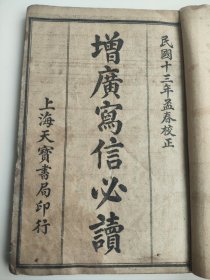 民國十三年孟春校正
增廣寫信必讀
上海天寶書局印行